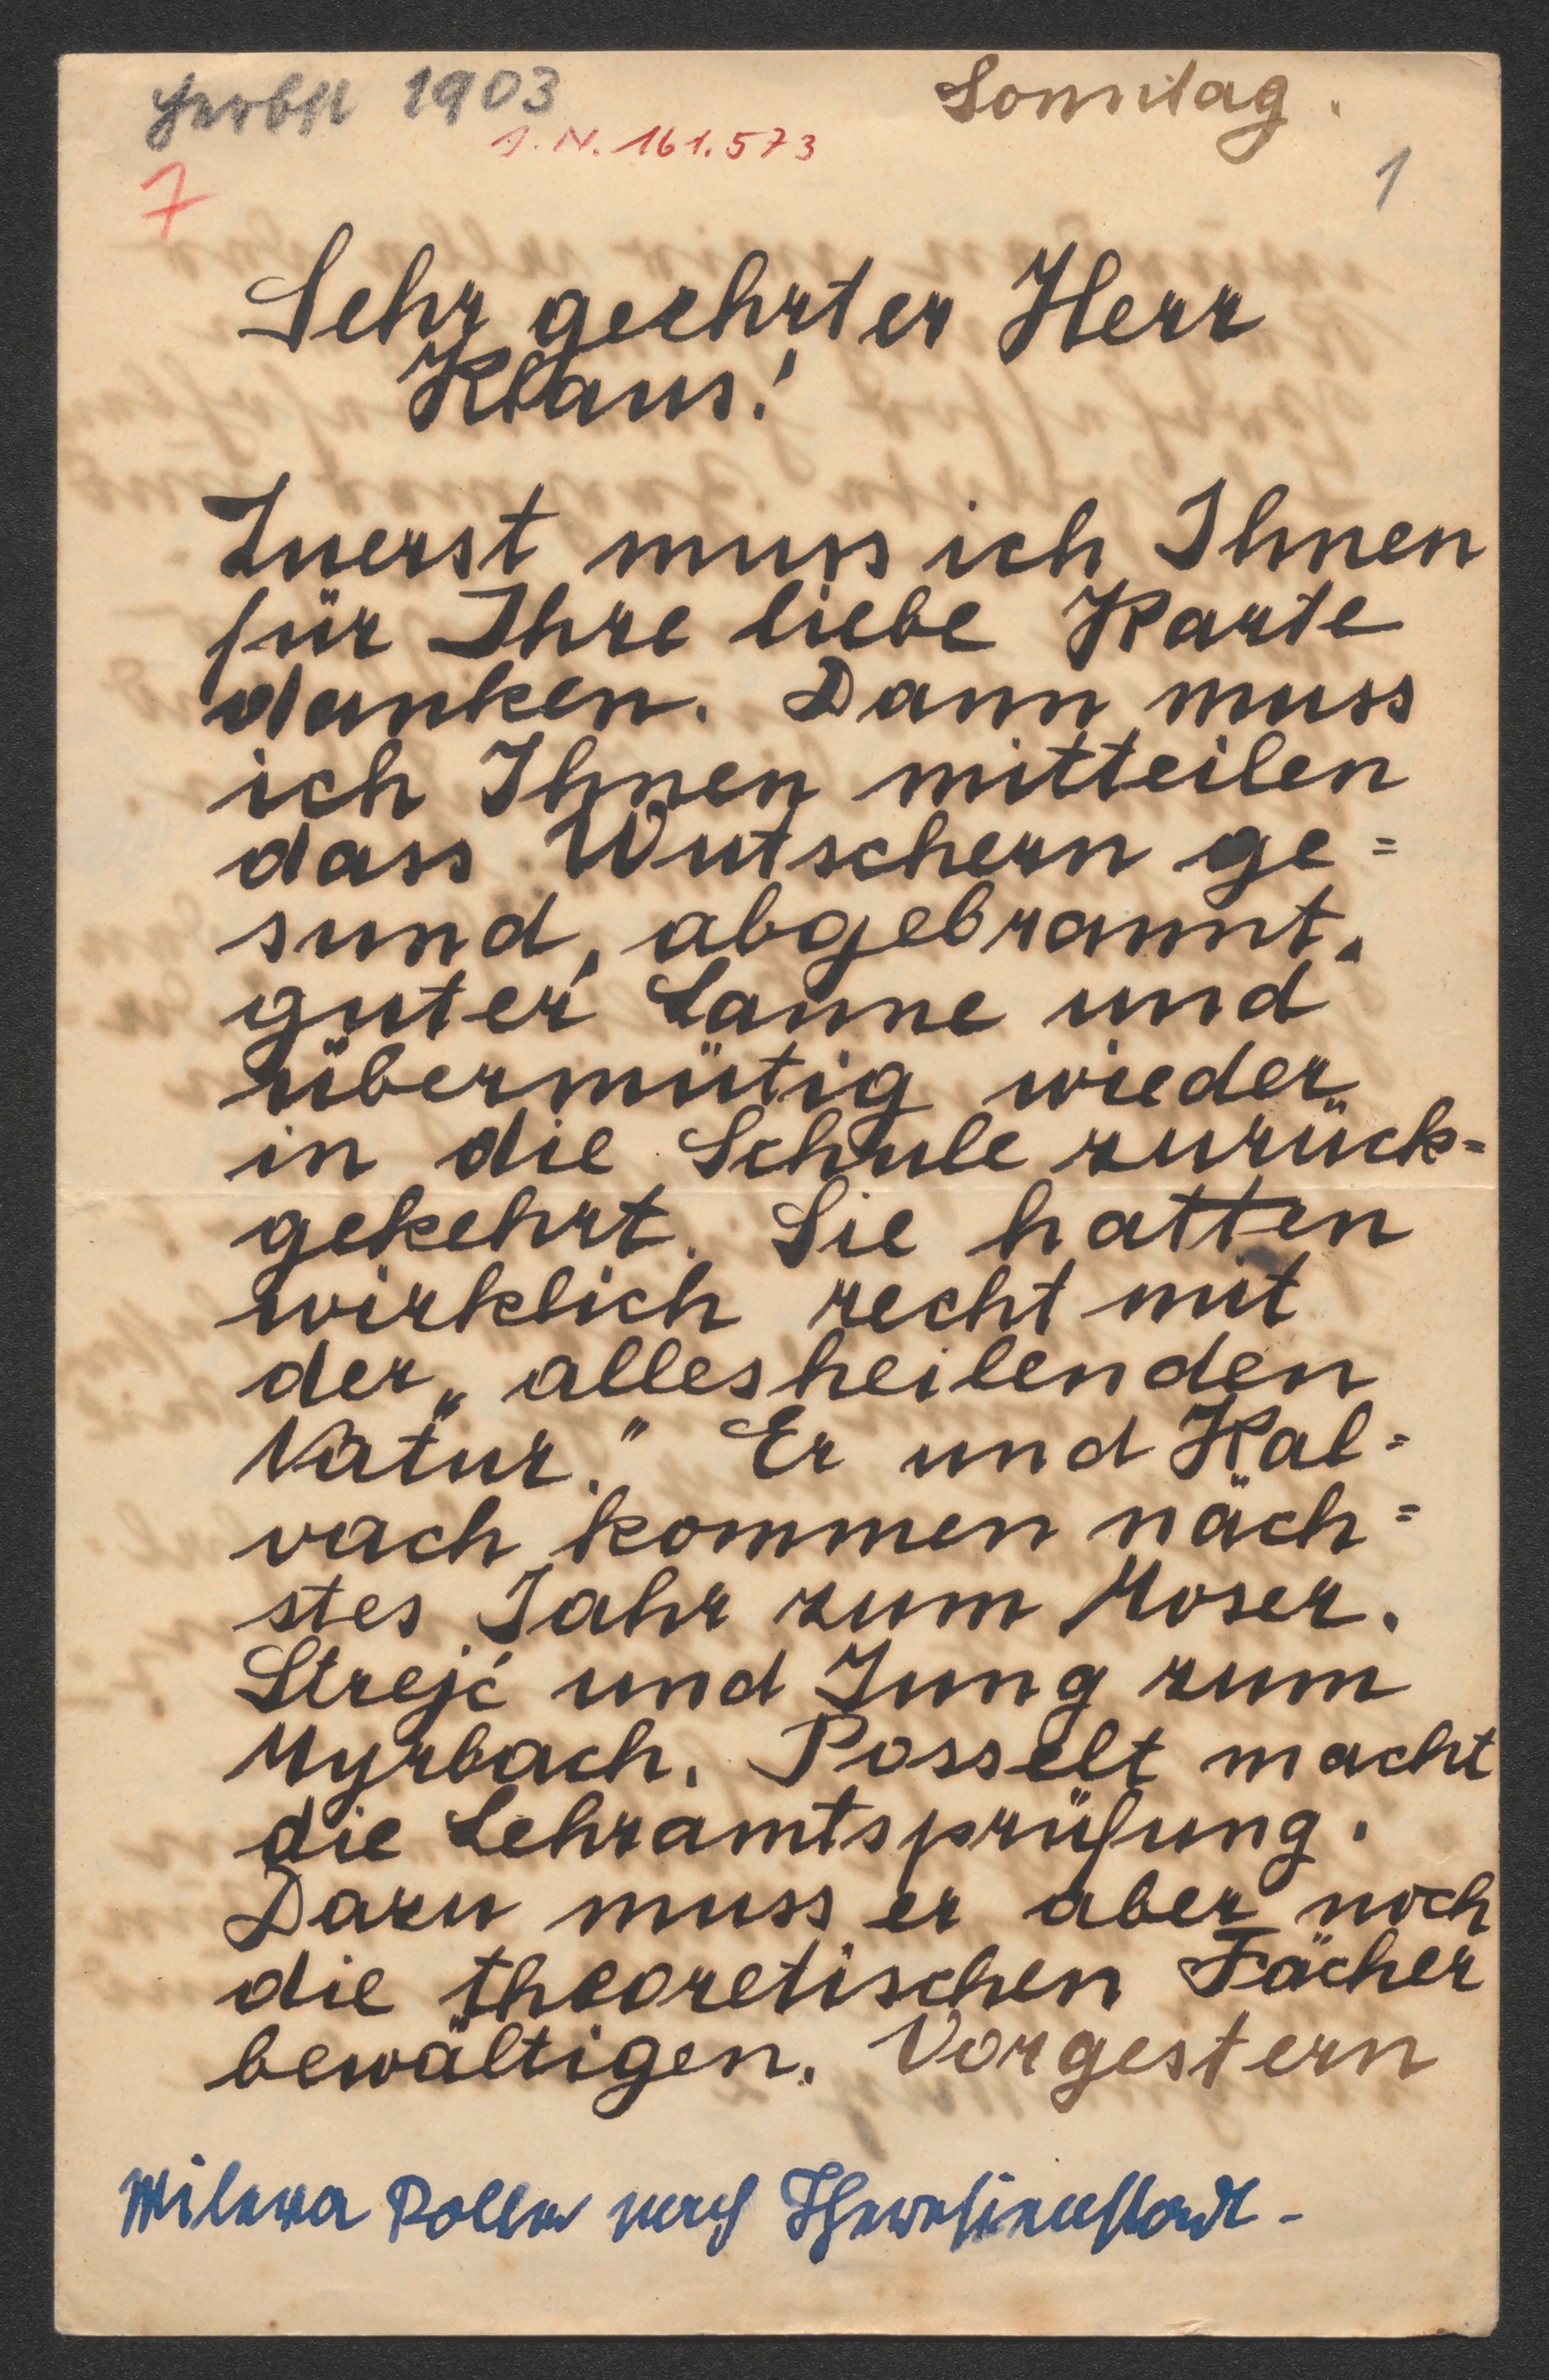 Herbst 1903
Sonntag.
J.N. 161.573
7
1
Sehr geehrter Herr
Klaus!
Zuerst muss ich Ihnen
für Ihre liebe Karte
danken. Dann muss
ich Ihnen mitteilen
dass Wutschern ge=
sund, abgebrannt,
guter Laune und
übermütig wieder
in die Schule zurück=
gekehrt. Sie hatten
wirklich recht mit
der „allesheilenden
Natur." Er und Kal=
vach kommen näch=
stes Jahr zum Moser.
Strejć und Jung zum
Myrbach. Posselt macht
die Lehramtsprüfung.
Dazu muss er aber noch
die theoretischen Fächer
bewältigen. Vorgestern
Milena Roller nach Theresienstadt-